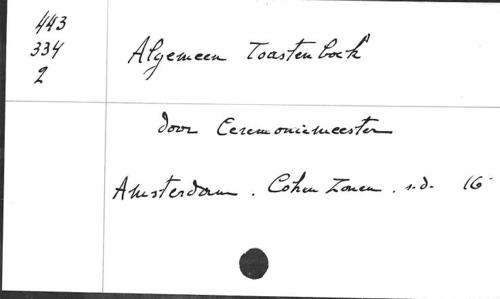 443
334
2
Algemeen Toastenboek
door Ceremoniemeester
Amsterdam. Cohen Zonen. s.d. 16°